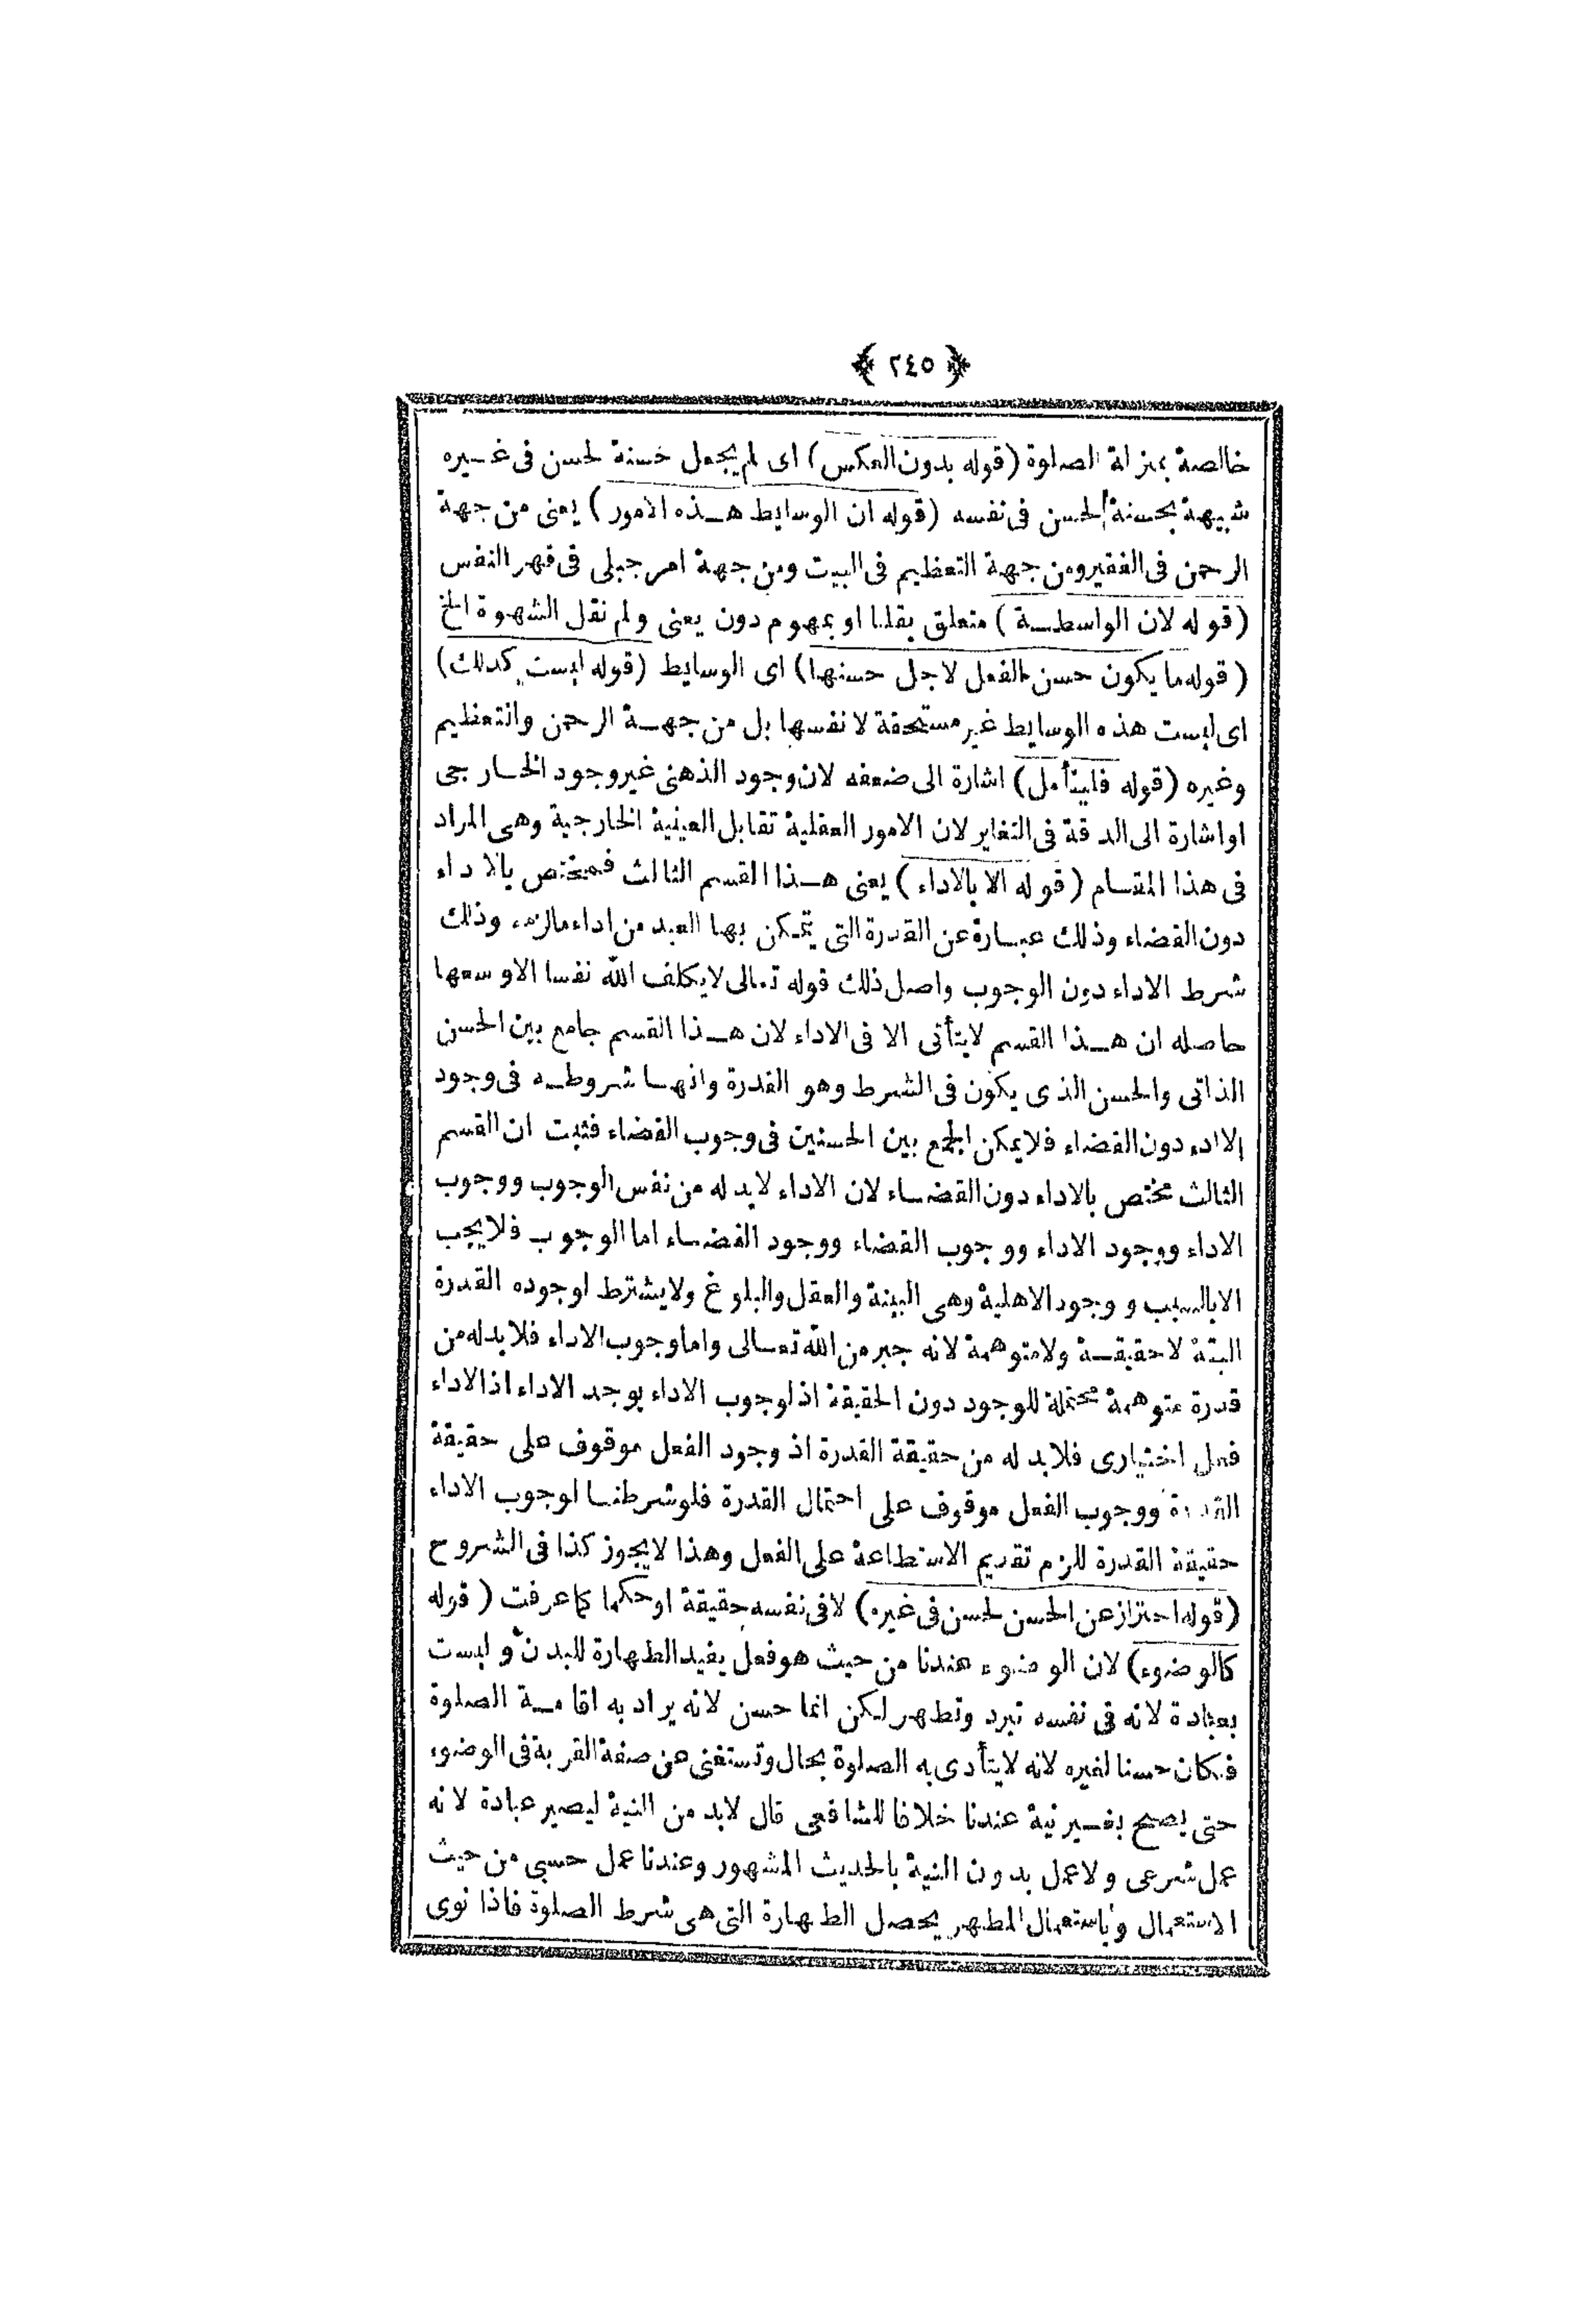 ﴿ ٢٤٥ ﴾
خالصة بمنزلة الصلوة (قوله بدون العكس) اى لم يجعل حسنة لحسن فى غيره
شبيهة بحسنة الحسن فى نفسه (قوله ان الوسايط هذه الامور) يعنى من جهة
الرحمن فى الفقير ومن جهة التعظيم فى البيت ومن جهة امر جبلى فى قهر النفس
(قوله لان الواسطة) متعلق بقلنا او بمفهوم دون يعنى ولم نقل الشهوة الخ
(قوله ما يكون حسن الفعل لاجل حسنها) اى الوسايط (قوله ليست كذلك)
اى ليست هذه الوسايط غير مستحقة لانفسها بل من جهة الرحمن والتعظيم
وغيره (قوله فليتأمل) اشارة الى ضعفه لان وجود الذهنى غير وجود الخارجى
او اشارة الى الدقة فى التغاير لان الامور العقلية تقابل العينية الخارجية وهى المراد
فى هذا المقام (قوله الا بالاداء) يعنى هذا القسم الثالث فمختص بالاداء
دون القضاء وذلك عبارة عن القدرة التى يتمكن بها العبد من اداء مالزمه وذلك
شرط الاداء دون الوجوب واصل ذلك قوله تعالى لا يكلف الله نفسا الا وسعها
حاصله ان هذا القسم لا يتأتى الا فى الاداء لان هذا القسم جامع بين الحسن
الذاتى والحسن الذى يكون فى الشرط وهو القدرة وانها شروطه فى وجود
الاداء دون القضاء فلا يمكن الجمع بين الحسنين فى وجوب القضاء فثبت ان القسم
الثالث مختص بالاداء دون القضاء لان الاداء لابد له من نفس الوجوب ووجوب
الاداء ووجود الاداء ووجوب القضاء ووجود القضاء اما الوجوب فلا يجب
الا بالسبب ووجود الاهلية وهى البينة والعقل والبلوغ ولا يشترط لوجوده القدرة
البتة لا حقيقة ولا متوهمة لانه جبر من الله تعالى واما وجوب الاداء فلا بد له من
قدرة متوهمة محتملة للوجود دون الحقيقة اذ لوجوب الاداء يوجد الاداء اذ الاداء
فعل اختيارى فلابد له من حقيقة القدرة اذ وجود الفعل موقوف على حقيقة
القدرة ووجوب الفعل موقوف على احتمال القدرة فلو شرطنا لوجوب الاداء
حقيقة القدرة للزم تقديم الاستطاعة على الفعل وهذا لا يجوز كذا فى الشروح
(قوله احتراز عن الحسن لحسن فى غيره) لا فى نفسه حقيقة او حكما كما عرفت (قوله
كالوضوء) لان الوضوء عندنا من حيث هو فعل يفيد الطهارة للبدن وليست
بعبادة لانه فى نفسه تبرد وتطهر لكن انما حسن لانه يراد به اقامة الصلوة
فكان حسنا لغيره لانه لا يتأدى به الصلوة بحال وتستغنى عن صفة القربة فى الوضوء
حتى يصح بغير نية عندنا خلافا للشافعى قال لابد من النية ليصير عبادة لانه
عمل شرعى ولا عمل بدون النية بالحديث المشهور وعندنا عمل حسى من حيث
الاستعمال وباستعمال المطهر يحصل الطهارة التى هى شرط الصلوة فاذا نوى